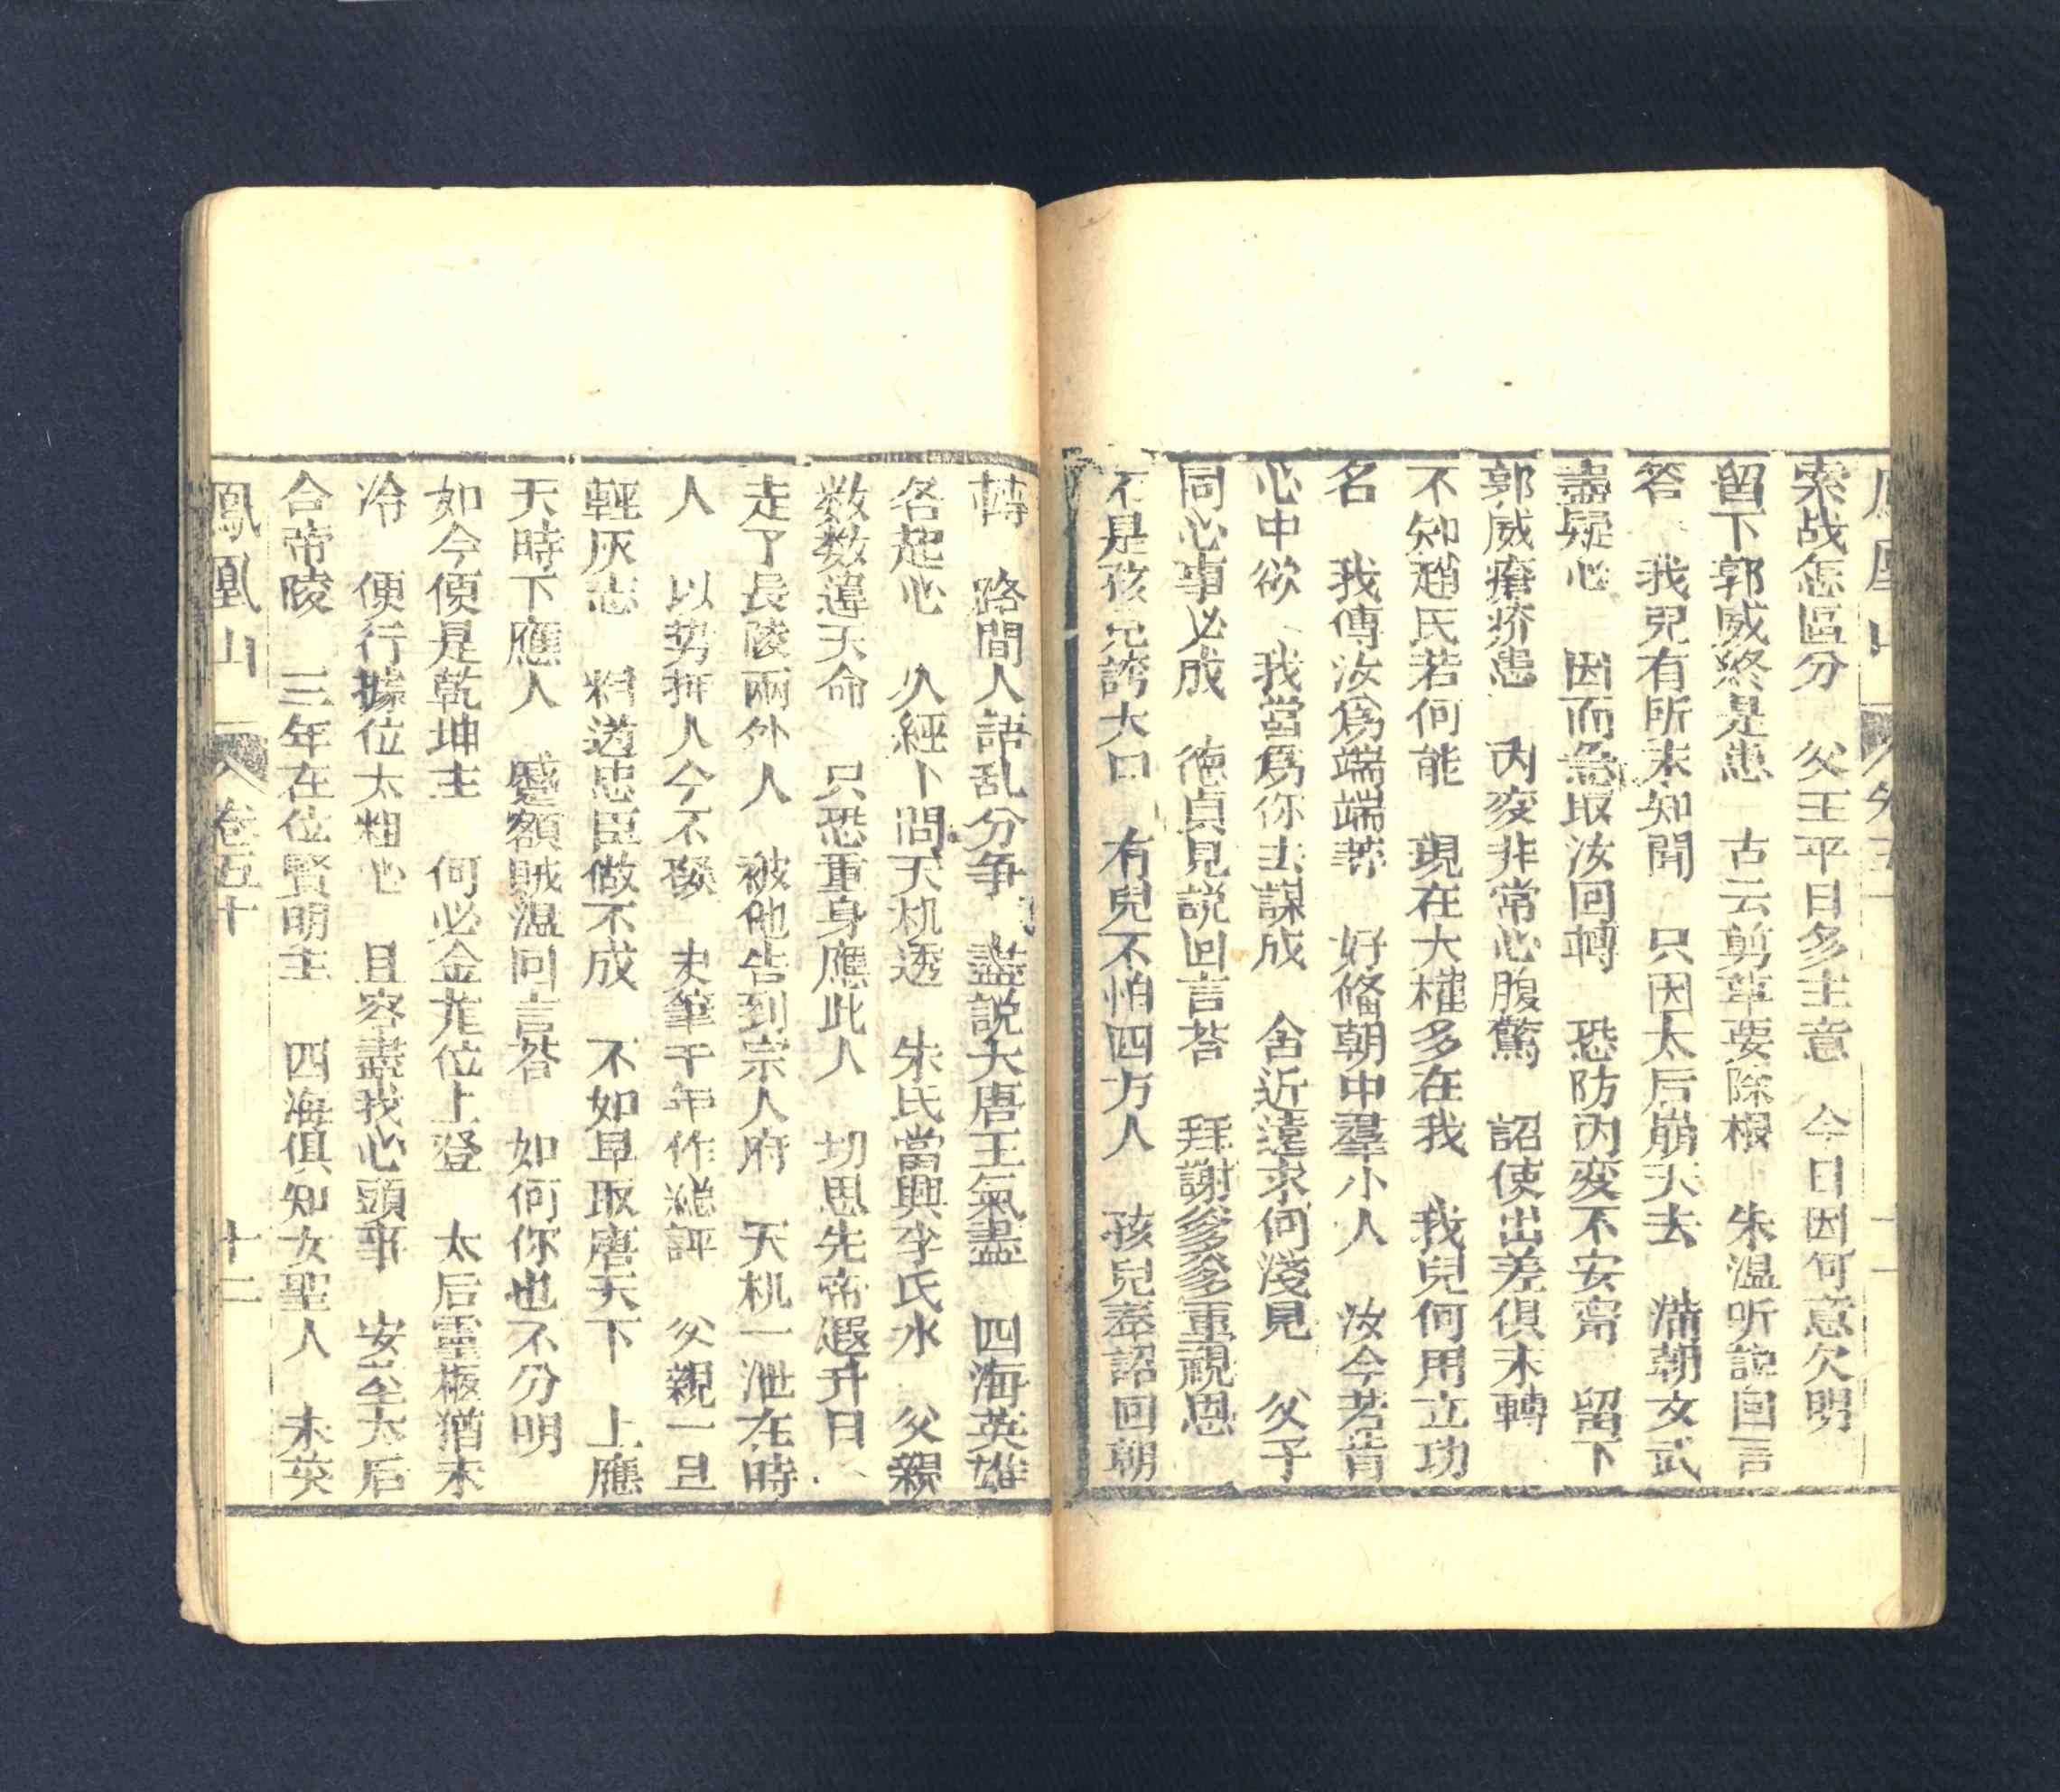 索战怎區分　父王平日多主意　今日因何意欠明
留下郭威終是患　古云剪草要除根　朱温听說回言
答　我兒有所未知聞　只因太后崩天去　滿朝文武
盡疑心　因而急取汝回轉　恐防内変不安甯　留下
郭威瘡疥患　内変非常心腹驚　詔使出差俱未轉
不知趙氏若何能　現在大權多在我　我兒何用立功
名　我傳汝爲端端事　好脩朝中羣小人　汝今若肯
心中欲　我當爲你去謀成　舍近遠求何淺見　父子
同心事必成　德貞見説回言荅　拜謝爹爹重視恩
不是孩兒誇大口　有兒不怕四方人　孩兒奉詔回朝
轉　路間人語乱分争　盡説大唐王氣盡　四海英雄
各起心　人經卜問天机透　朱氏當興李氏水　父親
数数違天命　只恐重身應此人　切思先帝遐升日
走了長陵兩外人　被他告到宗人府　天机一泄在時
人　以势拆人今不發　史筆千年作總評　父親一旦
輕灰志　料道忠臣做不成　不如早取唐天下　上應
天時下應人　蹙額賊温回言荅　如何你也不分明
如今便是乾坤主　何必金尨位上登　太后靈柩猶未
冷　便行據位太粗心　且容盡我心頭事　安塟太后
合帝陵　三年在位賢明主　四海俱知女聖人　未英
鳳凰山　卷五十　十二